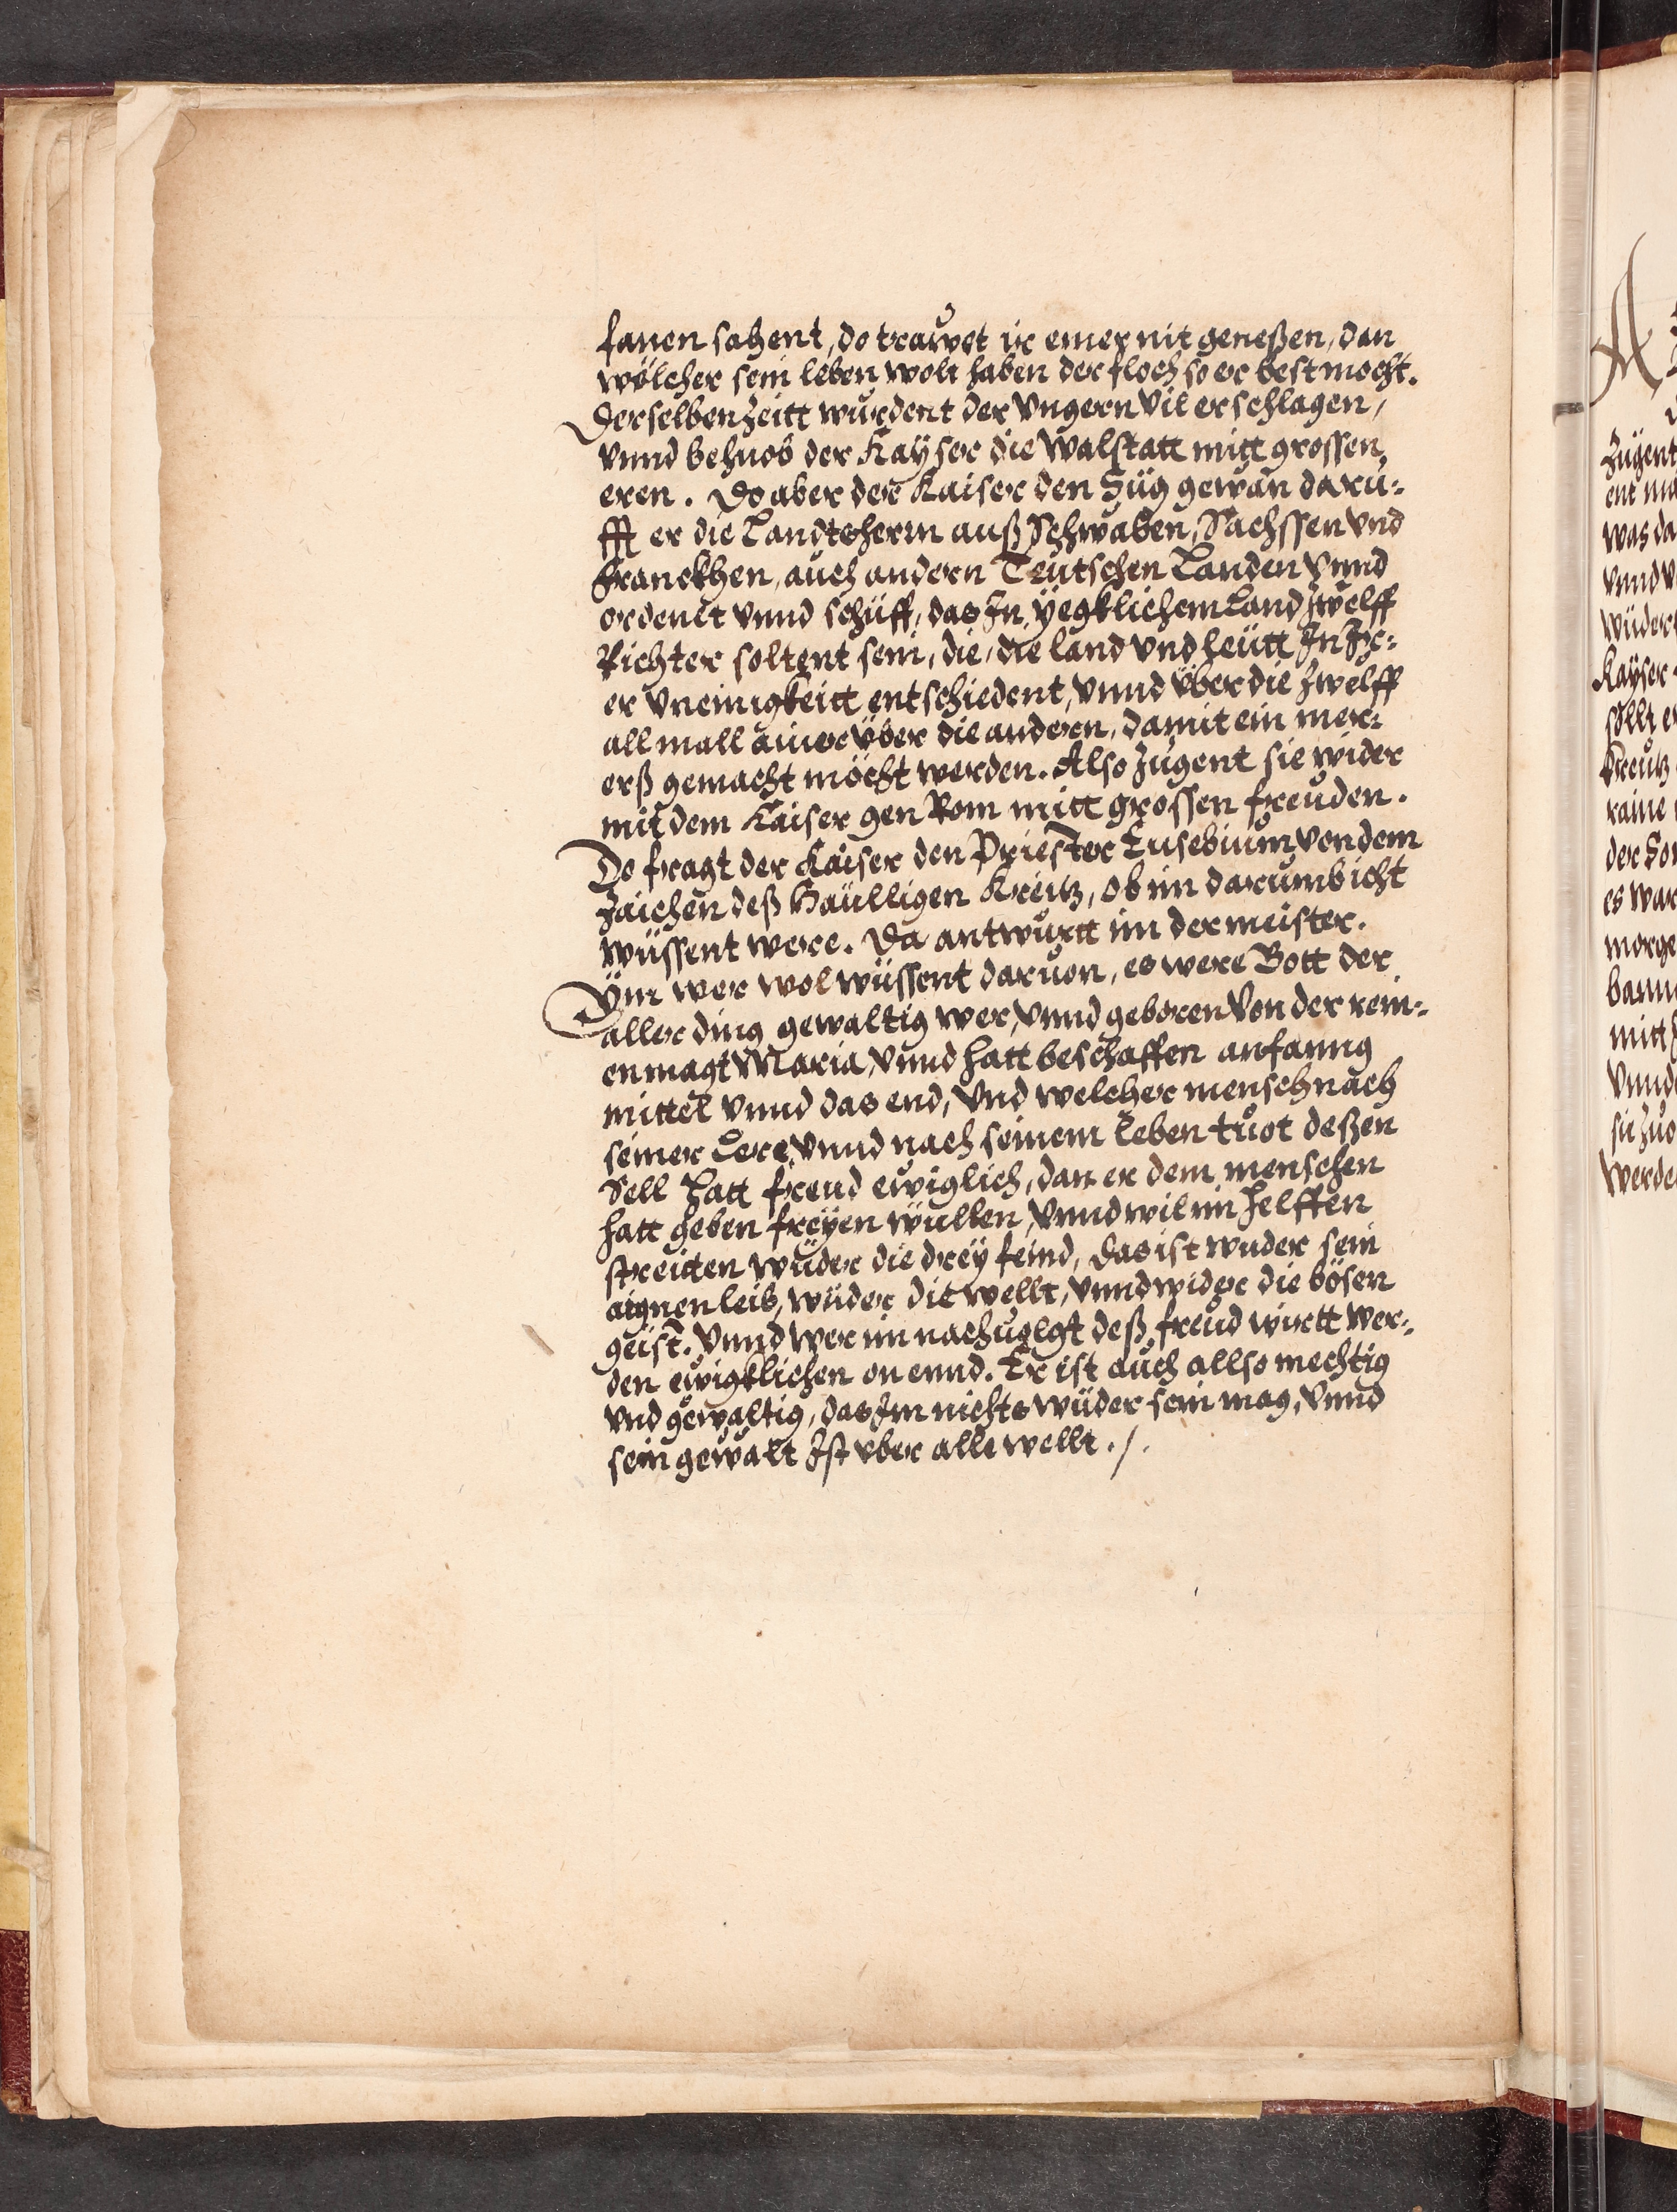 fanen sahent, do trauwet ir einer nit geneßen, dan
wölcher sein leben wolt haben der floch so er best mocht.
Derselben Zeitt wurdent der Vngern vil erschlagen,
vnnd behuob der Kayser die walstatt mitt grossen
eren. Do aber der Kaiser den Süg gewan daru⸗
fft er die Landtsherrn auß Schwaben, Sachssen vnd
Franckhen, auch andern Teutschen Landen vnnd
ordenet vnnd schüff, das In yegklichem Land zwelff
Richter soltent sein, die, die land vnd leütt In Ir⸗
er vneinigkeitt entschiedent, vnnd über die zwelff
all mall ainer über die andern, damit ein mer⸗
erß gemacht möcht werden. Also zugent sie wider
mit dem Kaiser gen Rom mitt grossen freuden.
Do fragt der Kaiser den Priester Eusebium von dem
zaichen deß Haülligen Kreitz, ob im darumb icht
wüssent were. Da antwurtt im der meister.
Ym wer wol wüssent daruon, es were Gott der
aller ding gewaltig wer, vnnd geboren von der rein⸗
en magt Maria, vnnd hatt beschaffen anfanng
mittel vnnd das end, vnd welcher mensch nach
seiner Lere vnnd nach seinem leben tuot deßen
Sell hatt freud ewiglich, dan er dem menschen
hatt geben freyen wüllen, vnnd wil im helffen
streitten wüder die drey feind, das ist wuder sein
aignen leib, wüder die wellt, vnnd wider die bösen
geist. Vnnd wer im nachuolgt deß freud wirtt wer⸗
den ewigklichen on ennd. Er ist auch allso mechtig
vnd gewaltig, das Im nichts wüder sein mag, vnnd
sein gewalt Ist vber alle wellt. /.
A
Zugent
ent
was da
vnnd
wüder
Kayser
söllt
Kreutz
raine
der
es war
morge
bann
mitt
vnnd
sü zuo
werde